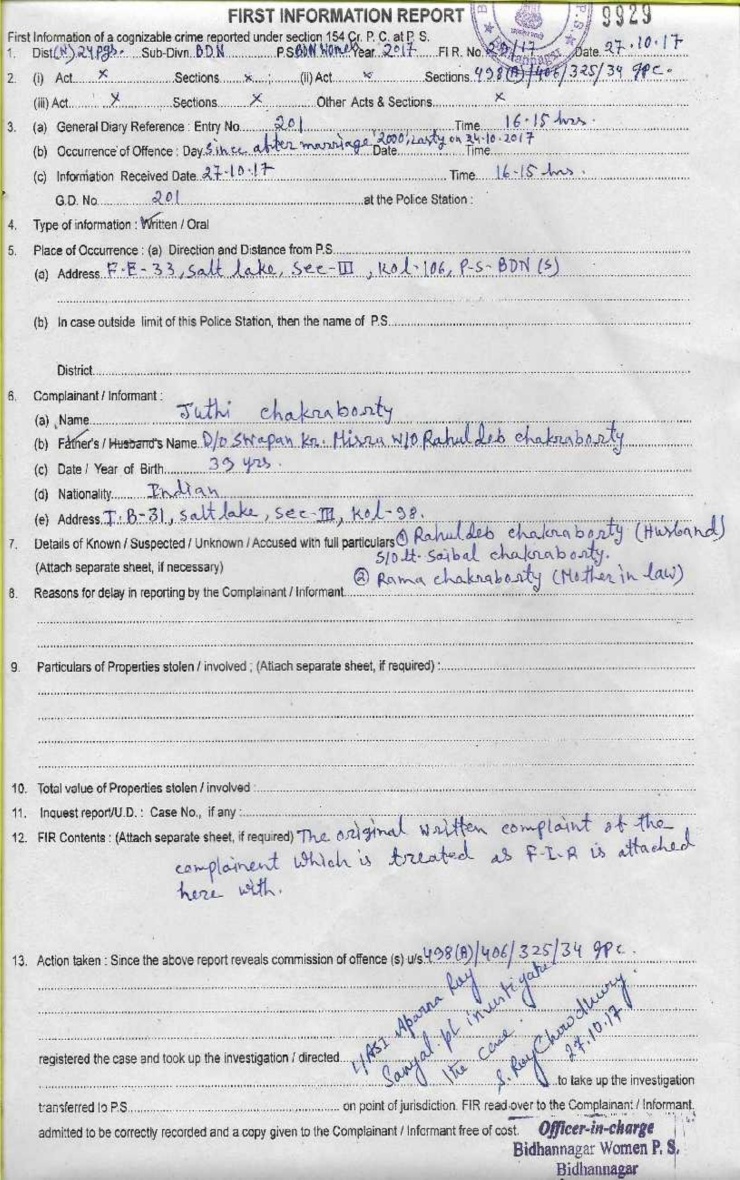 FIRST INFORMATION REPORT
9929
First Information of a cognizable crime reported under section 154 Cr. P. C. at P. S.
1. Dist (N) 24 Pgs. Sub-Divn. BDN P.S. BDN Women Year 2017 F.I R. No. /17 Date. 27.10.17
2. (i) Act x Sections x (ii) Act x Sections. 498(A)/406/325/34 IPC.
(iii) Act x Sections x Other Acts & Sections x
3. (a) General Diary Reference : Entry No. 201 Time 16-15 hrs.
(b) Occurrence of Offence : Day Since after marriage '2000, lastly on 24-10-2017 Date Time
(c) Information Received Date 27-10-17 Time 16-15 hrs.
G.D. No. 201 at the Police Station :
4. Type of information : Written / Oral
5. Place of Occurrence : (a) Direction and Distance from P.S.
(a) Address F-E-33, Salt lake, Sec-III, Kol-106, P-S-BDN (S)
(b) In case outside limit of this Police Station, then the name of P.S.
District
6. Complainant / Informant :
(a) Name Juthi chakraborty
(b) Father's / Husband's Name D/o Swapan Kr. Misra W/O Rahul deb chakraborty
(c) Date / Year of Birth 39 yrs.
(d) Nationality Indian
(e) Address I-B-31, salt lake, sec-III, Kol-98.
7. Details of Known / Suspected / Unknown / Accused with full particulars ① Rahul deb chakraborty (Husband)
S/O Lt. Saibal chakraborty.
(Attach separate sheet, if necessary)
② Rama chakraborty (Mother in law)
8. Reasons for delay in reporting by the Complainant / Informant
9. Particulars of Properties stolen / involved ; (Attach separate sheet, if required) :
10. Total value of Properties stolen / involved :
11. Inquest report/U.D. : Case No., if any :
12. FIR Contents : (Attach separate sheet, if required) The original written complaint of the
complainent which is treated as F-I-R is attached
here with.
13. Action taken : Since the above report reveals commission of offence (s) u/s 498(A)/406/325/34 IPC.
L/ASI Aparna Ray
Sanyal pl investigate
the case.
S. Ray Chowdhury
27.10.17
registered the case and took up the investigation / directed
to take up the investigation
transferred to P.S. on point of jurisdiction. FIR read over to the Complainant / Informant,
admitted to be correctly recorded and a copy given to the Complainant / Informant free of cost.
Officer-in-charge
Bidhannagar Women P. S.
Bidhannagar